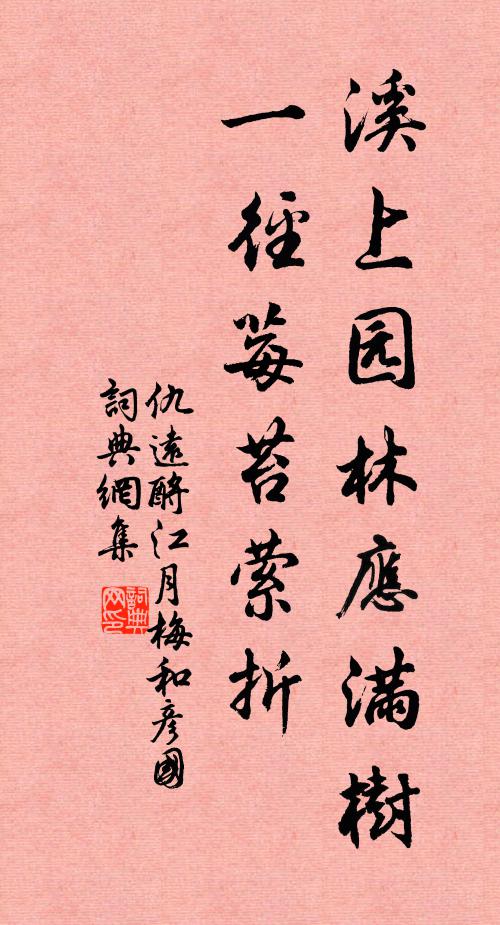 溪上园林應滿樹
一徑莓苔萦折
仇遠酹江月梅和彦國
詞典網集
詞典網印